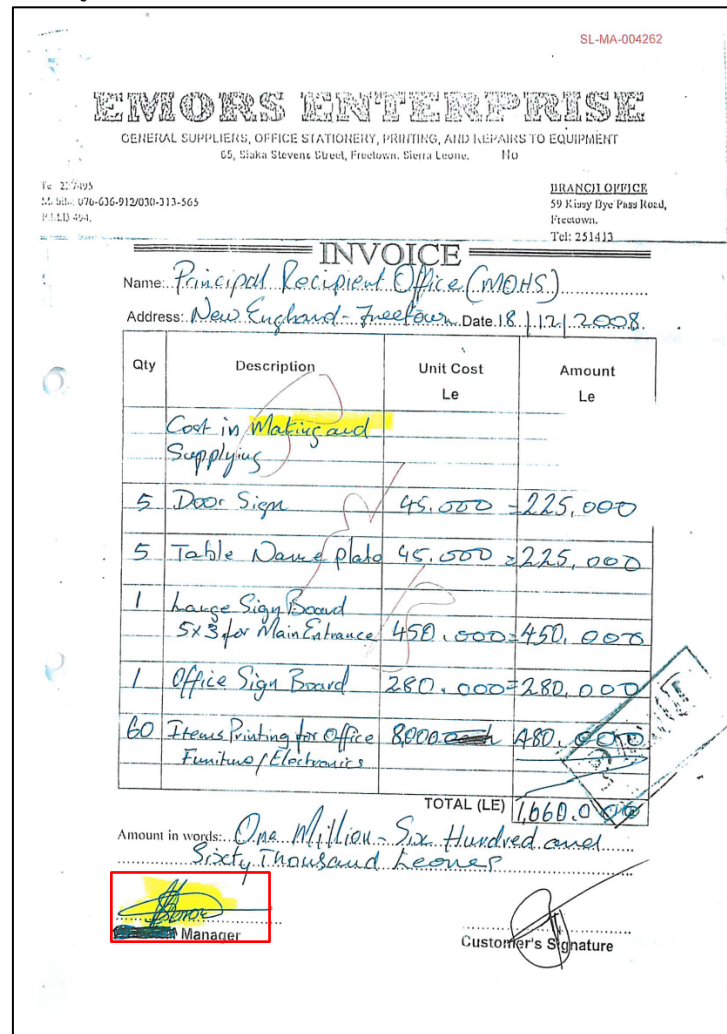 SL-MA-004262
EMORS ENTERPRISE
GENERAL SUPPLIERS, OFFICE STATIONERY, PRINTING, AND REPAIRS TO EQUIPMENT
65, Siaka Stevens Street, Freetown. Sierra Leone. No
BRANCH OFFICE
59 Kissy Bye Pass Road,
Freetown.
Tel: 251413
076-636-912/030-313-565
INVOICE
Name: Principal Recipient Office (MOHS)
Address: New England - Freetown Date 18 | 12 | 2008.
Qty Description Unit Cost Le Amount Le
Cost in Making and
Supplying
5 Door Sign 45.000 = 225,000
5 Table Name plate 45,000 = 225,000
1 Large Sign Board
5x3 for Main Entrance 450.000 = 450,000
1 Office Sign Board 280.000 = 280,000
60 Items Printing for Office 8,000 480,000
Furniture/Electronics
TOTAL (LE) 1,660.000
Amount in words: One Million - Six Hundred and
Sixty Thousand Leones
Manager
Customer's Signature